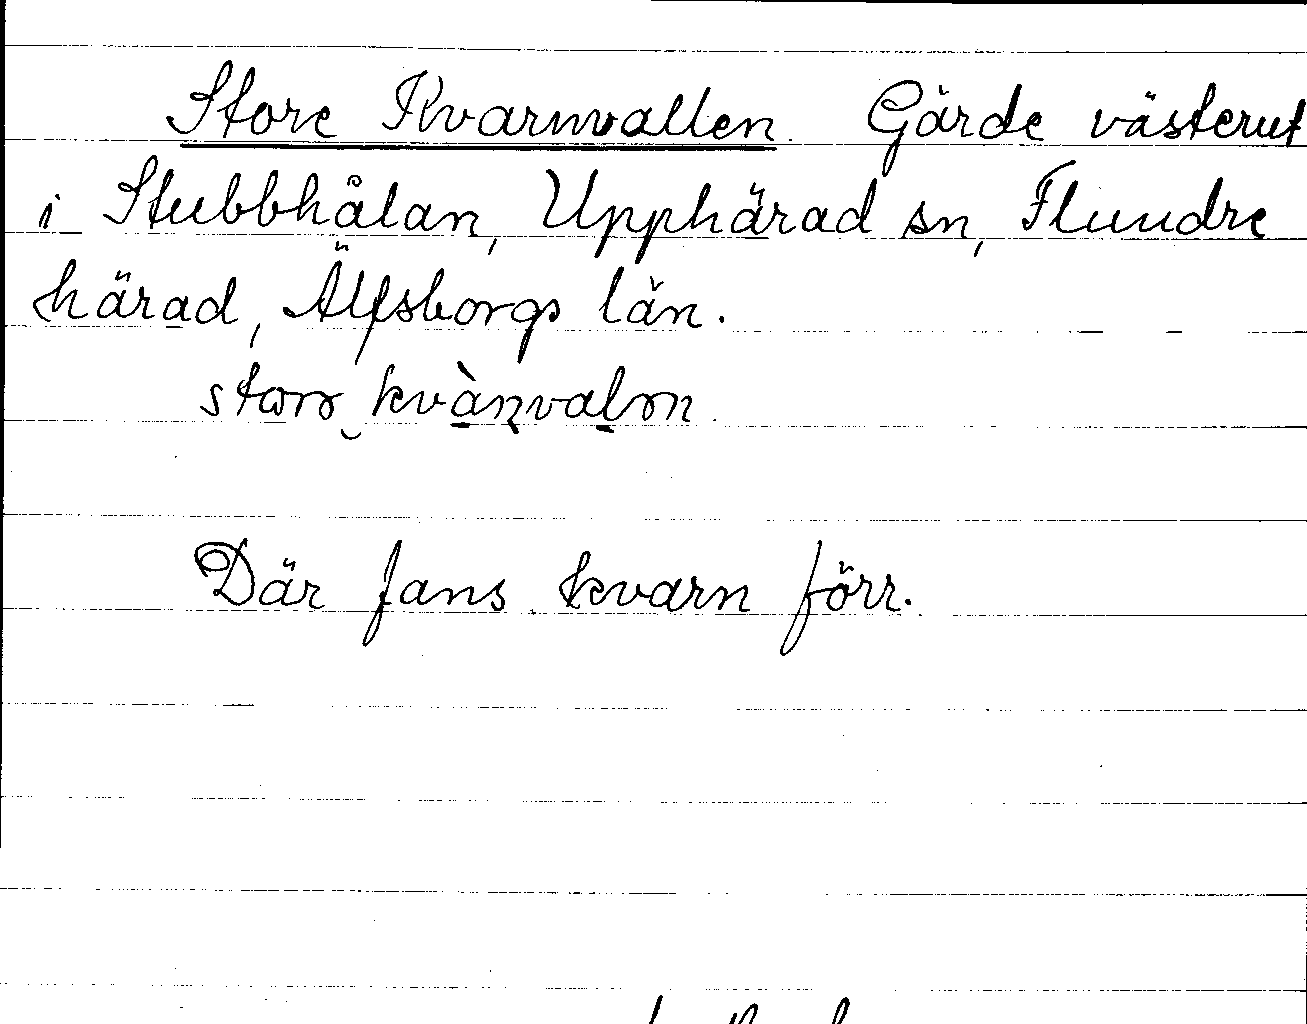 Store Kvarnvallen Gärde västerut
i Stubbhålan, Upphärad sn, Flundre
härad, Älfsborgs län.
Där fans kvarn förr.